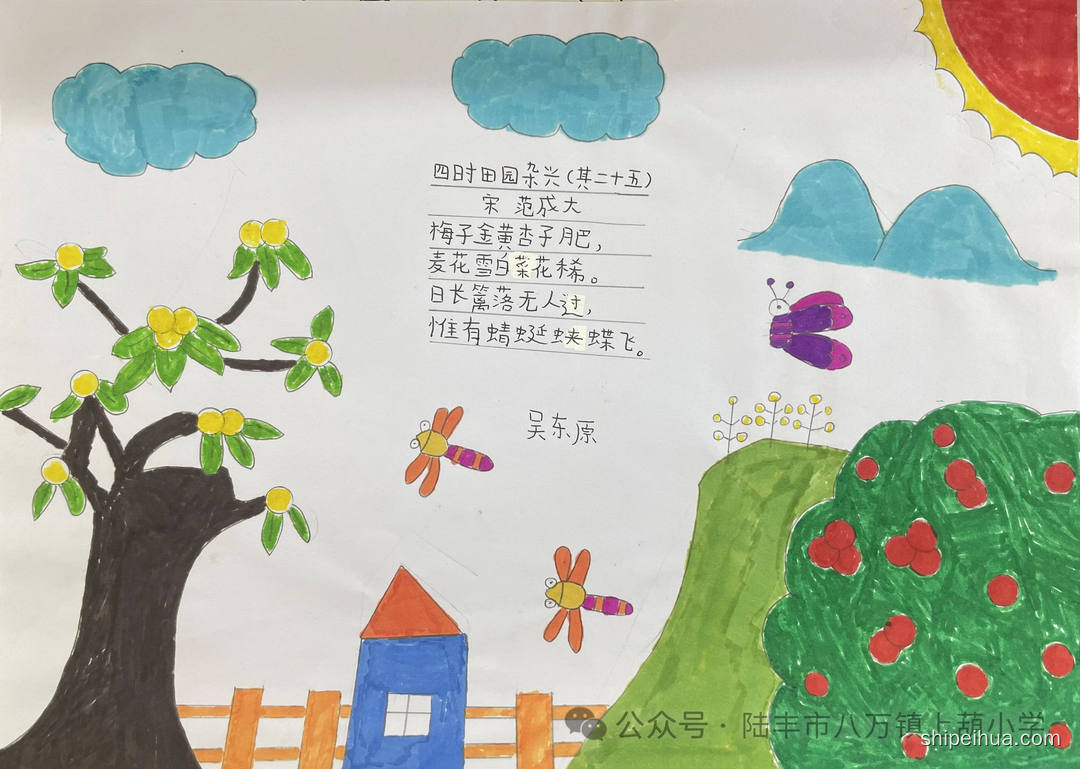 四时田园杂兴(其二十五)
宋 范成大
梅子金黄杏子肥,
麦花雪白菜花稀。
日长篱落无人过,
惟有蜻蜓蛱蝶飞。
吴东原
公众号·陆丰市八万镇上葫小学
shipeihua.com